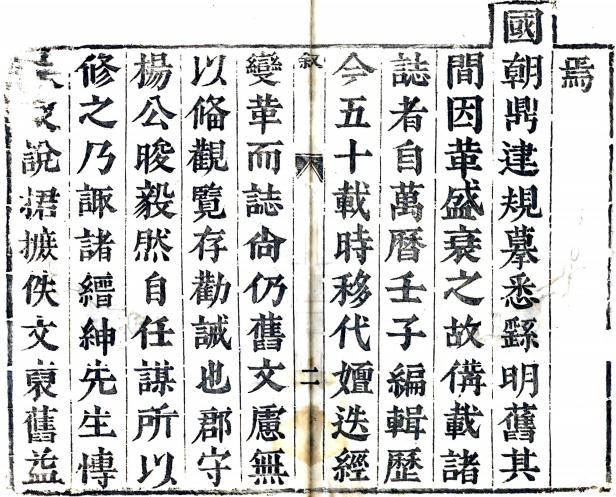 焉
國朝鼎建規摹悉繇明舊其
間因革盛衰之故備載諸
誌者自萬曆壬子編輯歷
今五十載時移代嬗迭經
敘 二
變革而誌尙仍舊文慮無
以俻觀覽存勸誡也郡守
楊公晙毅然自任謀所以
修之乃諏諸縉紳先生博
說捃摭佚文裒舊益